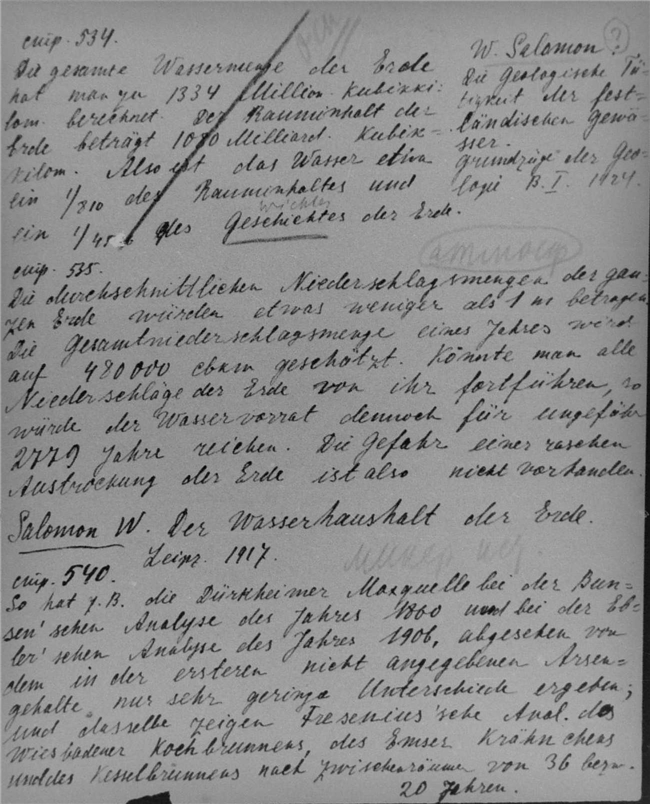 стр. 534.
Die gesamte Wassermenge der Erde
hat man zu 1334 Million. Kubikki-
lom. berechnet. Der Rauminhalt der
Erde beträgt 1080 Milliard. Kubik-
kilom. Also ist das Wasser etwa
ein 1/810 des Rauminhaltes und
ein 1/4536 des Geschichtes der Erde.
W. Salomon.
Die Geologische Tä-
tigkeit der fest-
ländischen Gewä-
sser.
Grundzüge der Geo-
logie B. I. 1924.
?
атмосф
стр. 535.
Die durchschnittlichen Niederschlagsmengen der gan-
zen Erde würden etwas weniger als 1 m betragen.
Die Gesamtniederschlagsmenge eines Jahres wird
auf 480000 cbkm geschätzt. Könnte man alle
Niederschläge der Erde von ihr fortführen, so
würde der Wasservorrat dennoch für ungefähr
2779 Jahre reichen. Die Gefahr einer raschen
Austrockung der Erde ist also nicht vorhanden.
Salomon W. Der Wasserhaushalt der Erde.
Leipz. 1917.
стр. 540.
So hat z.B. die Dürkheimer Maxquelle bei der Bun-
sen'schen Analyse des Jahres 1860 und bei der Eb-
ler'schen Analyse des Jahres 1906, abgesehen von
dem in der ersteren nicht angegebenen Arsen-
gehalte nur sehr geringe Unterschiede ergeben;
und dasselbe zeigen Fresenius'sche Anal. des
Wiesbadener Kochbrunnens, des Emser Krähnchens
und des Kesselbrunnens nach Zwischenräumen von 36 bezw.
20 Jahren.